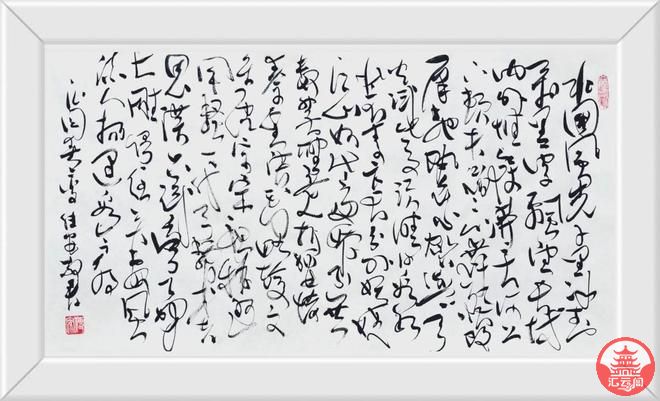 北国风光千里冰封
万里雪飘望长城
内外惟余莽莽大河上
下顿失滔滔山舞银蛇
原驰蜡象欲与天公
试比高须晴日看红
装素裹分外妖娆
江山如此多娇引无
数英雄竞折腰惜
秦皇汉武略输文
采唐宗宋祖稍逊
风骚一代天骄成吉
思汗只识弯弓射
大雕俱往矣数风
流人物还看今朝
沁园春雪
汇云阁